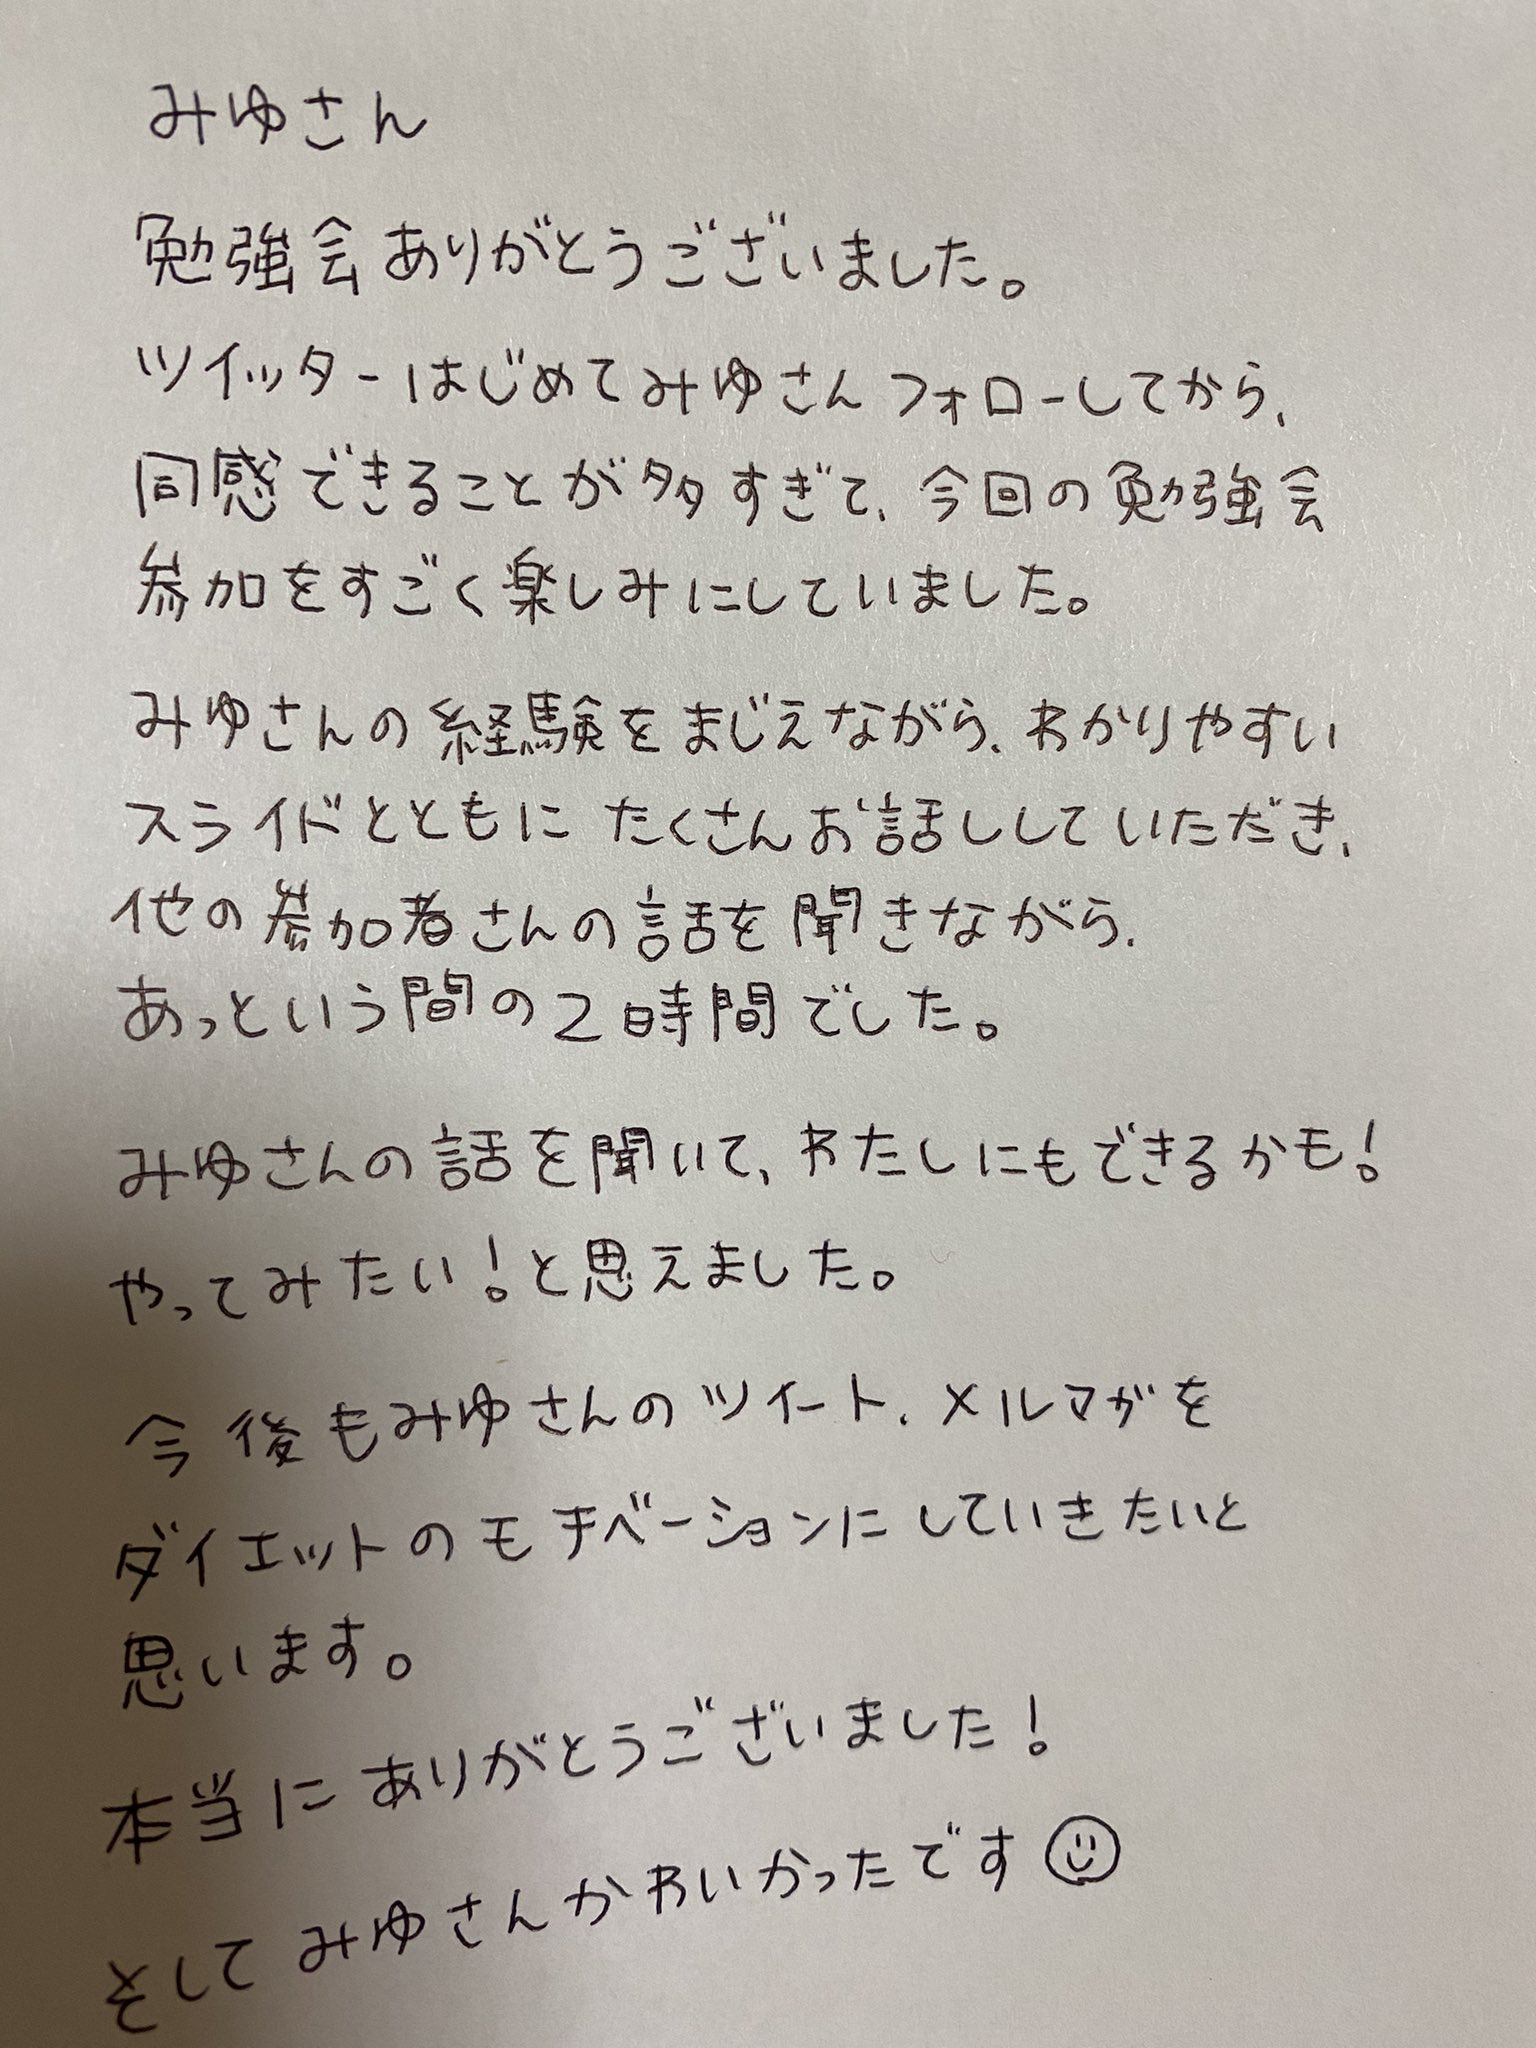 みゆさん
勉強会ありがとうございました。
ツイッターはじめてみゆさんフォローしてから、
同感できることが多すぎて、今回の勉強会
参加をすごく楽しみにしていました。
みゆさんの経験をまじえながら、わかりやすい
スライドとともにたくさんお話ししていただき、
他の参加者さんの話を聞きながら、
あっという間の2時間でした。
みゆさんの話を聞いて、わたしにもできるかも!
やってみたい!と思えました。
今後もみゆさんのツイート、メルマガを
ダイエットのモチベーションにしていきたいと
思います。
本当にありがとうございました!
そしてみゆさんかわいかったです☺